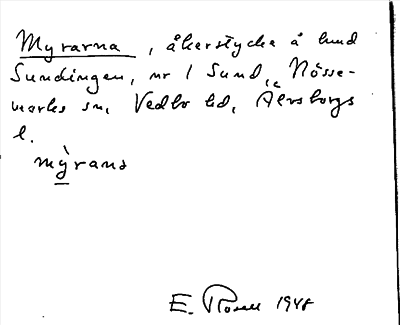 Myrarna, åkerstycke å hmd
Sundingen, nr 1 Sund, Nösse-
marks sn, Vedbo hd, Älvsborgs
l.
mỳrana
E. Rosell 1948